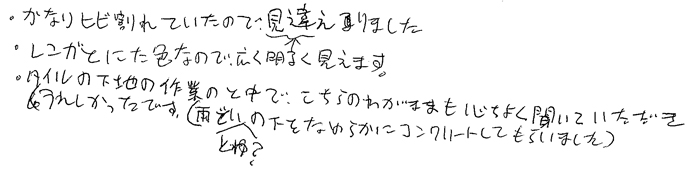 ・かなりヒビ割れていたので、見違え手りました
・レンガとにた色なので広く明るく見えます。
・タイルの下地の作業のと中で、こちらのわがままも心よく聞いていただき
うれしかったです。(雨どいの下をなめらかにコンクリートしてもらいました)
とゆ?